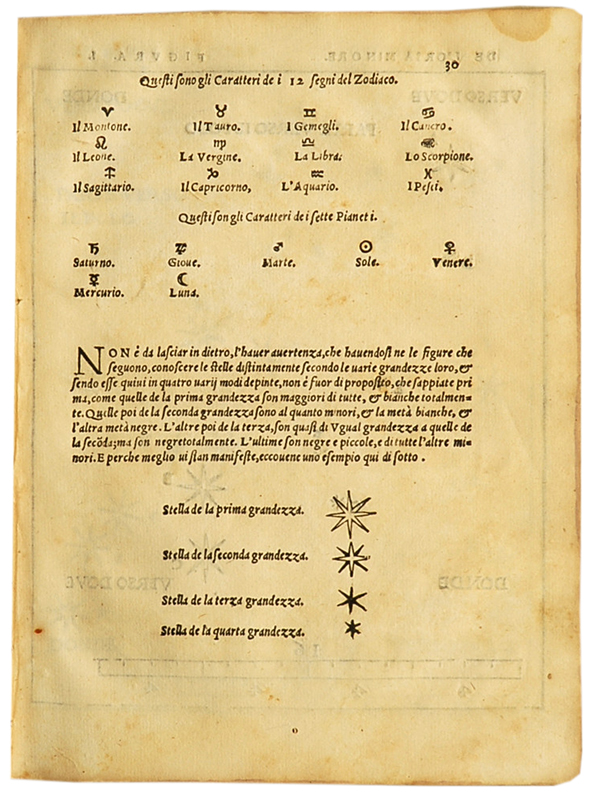 30
Questi sono gli Caratteri de i 12 segni del Zodiaco.
Il Montone. Il Tauro. I Gemegli. Il Cancro.
Il Leone. La Vergine. La Libra. Lo Scorpione.
Il Sagittario. Il Capricorno, L'Aquario. I Pesci.
Questi son gli Caratteri de i sette Pianeti.
Saturno. Gioue. Marte. Sole. Venere.
Mercurio. Luna.
NON è da lasciar in dietro, l'hauer auertenza, che hauendosi ne le figure che
seguono, conoscere le stelle distintamente secondo le uarie grandezze loro, &
sendo esse quiui in quatro uarij modi depinte, non é fuor di proposito, che sappiate pri
ma, come quelle de la prima grandezza son maggiori di tutte, & bianche totalmen=
te. Quelle poi de la seconda grandezza sono al quanto minori, & la metà bianche, &
l'altra metà negre. L'altre poi de la terza, son quasi di Vgual grandezza a quelle de
la secōda; ma son negre totalmente. L'ultime son negre e piccole, e di tutte l'altre mi=
nori. E perche meglio ui sian manifeste, eccouene uno esempio qui di sotto.
Stella de la prima grandezza.
Stella de la seconda grandezza.
Stella de la terza grandezza.
Stella de la quarta grandezza.